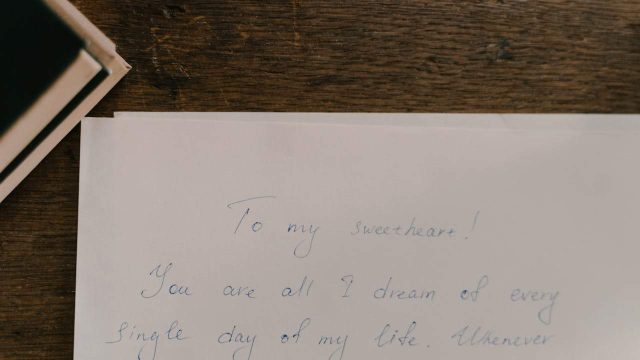 To my sweetheart!
You are all I dream of every
single day of my life. Whenever